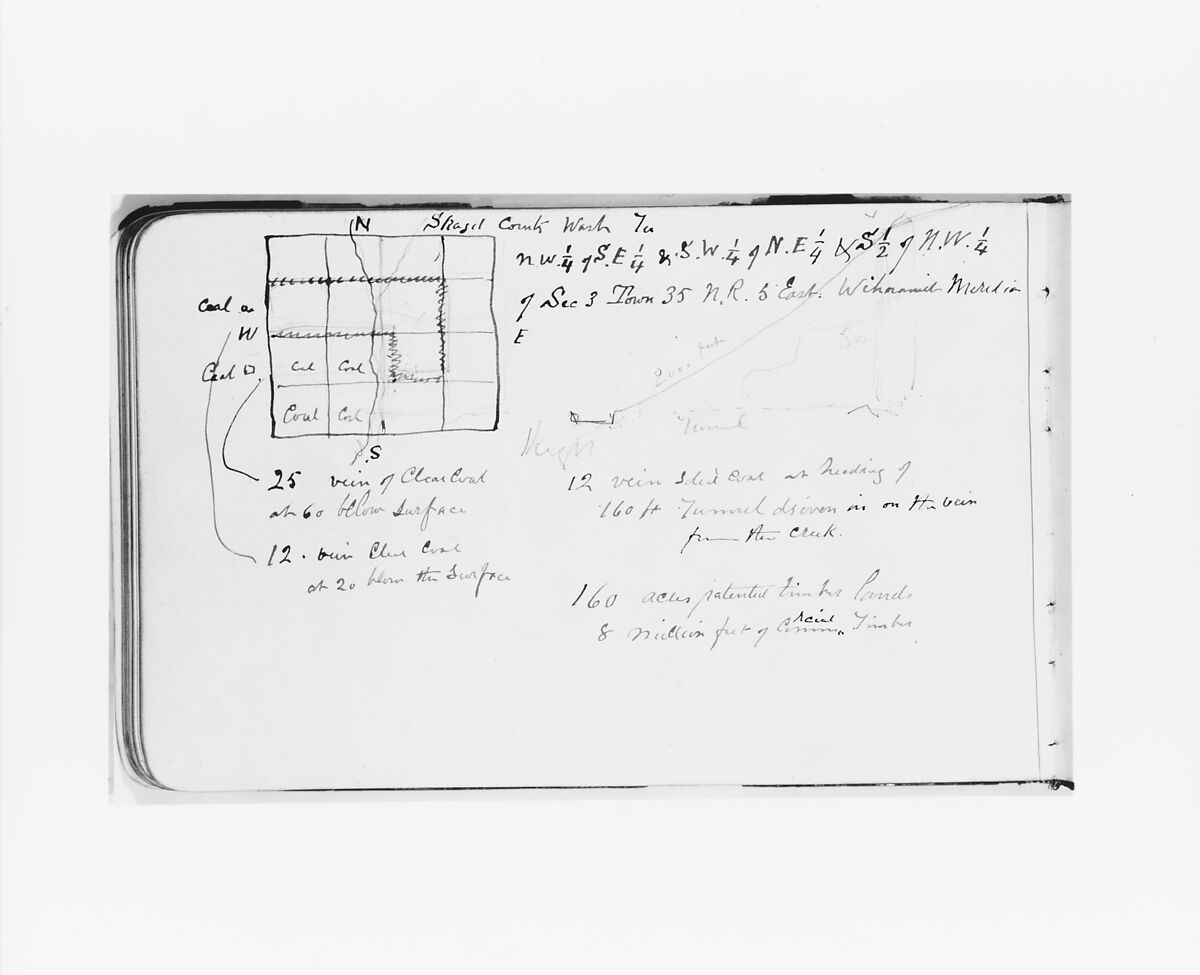 N
Skagit County Wash Ter
N.W. 1/4 of S.E 1/4 & S.W. 1/4 of N.E 1/4 & S 1/2 of N.W. 1/4
of Sec 3 Town 35 N.R. 5 East. Meridian
Coal
W
E
Coal
Coal Coal
Coal Coal
S
200 feet
500
Tunnel
Height
25 vein of Clear Coal
at 60 below Surface
12 . vein Clear Coal
at 20 below the Surface
12 vein Solid Coal at heading of
160 ft Tunnel driven in on the vein
from the creek.
160 acres patented timber lands
8 million feet of Commercial Timber